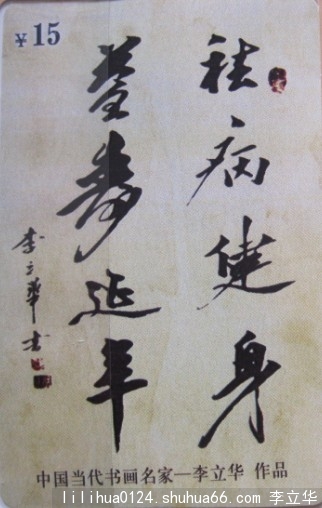 ¥15
祛病健身
益寿延年
李立华书
中国当代书画名家—李立华 作品
lilihua0124.shuhua66.com 李立华